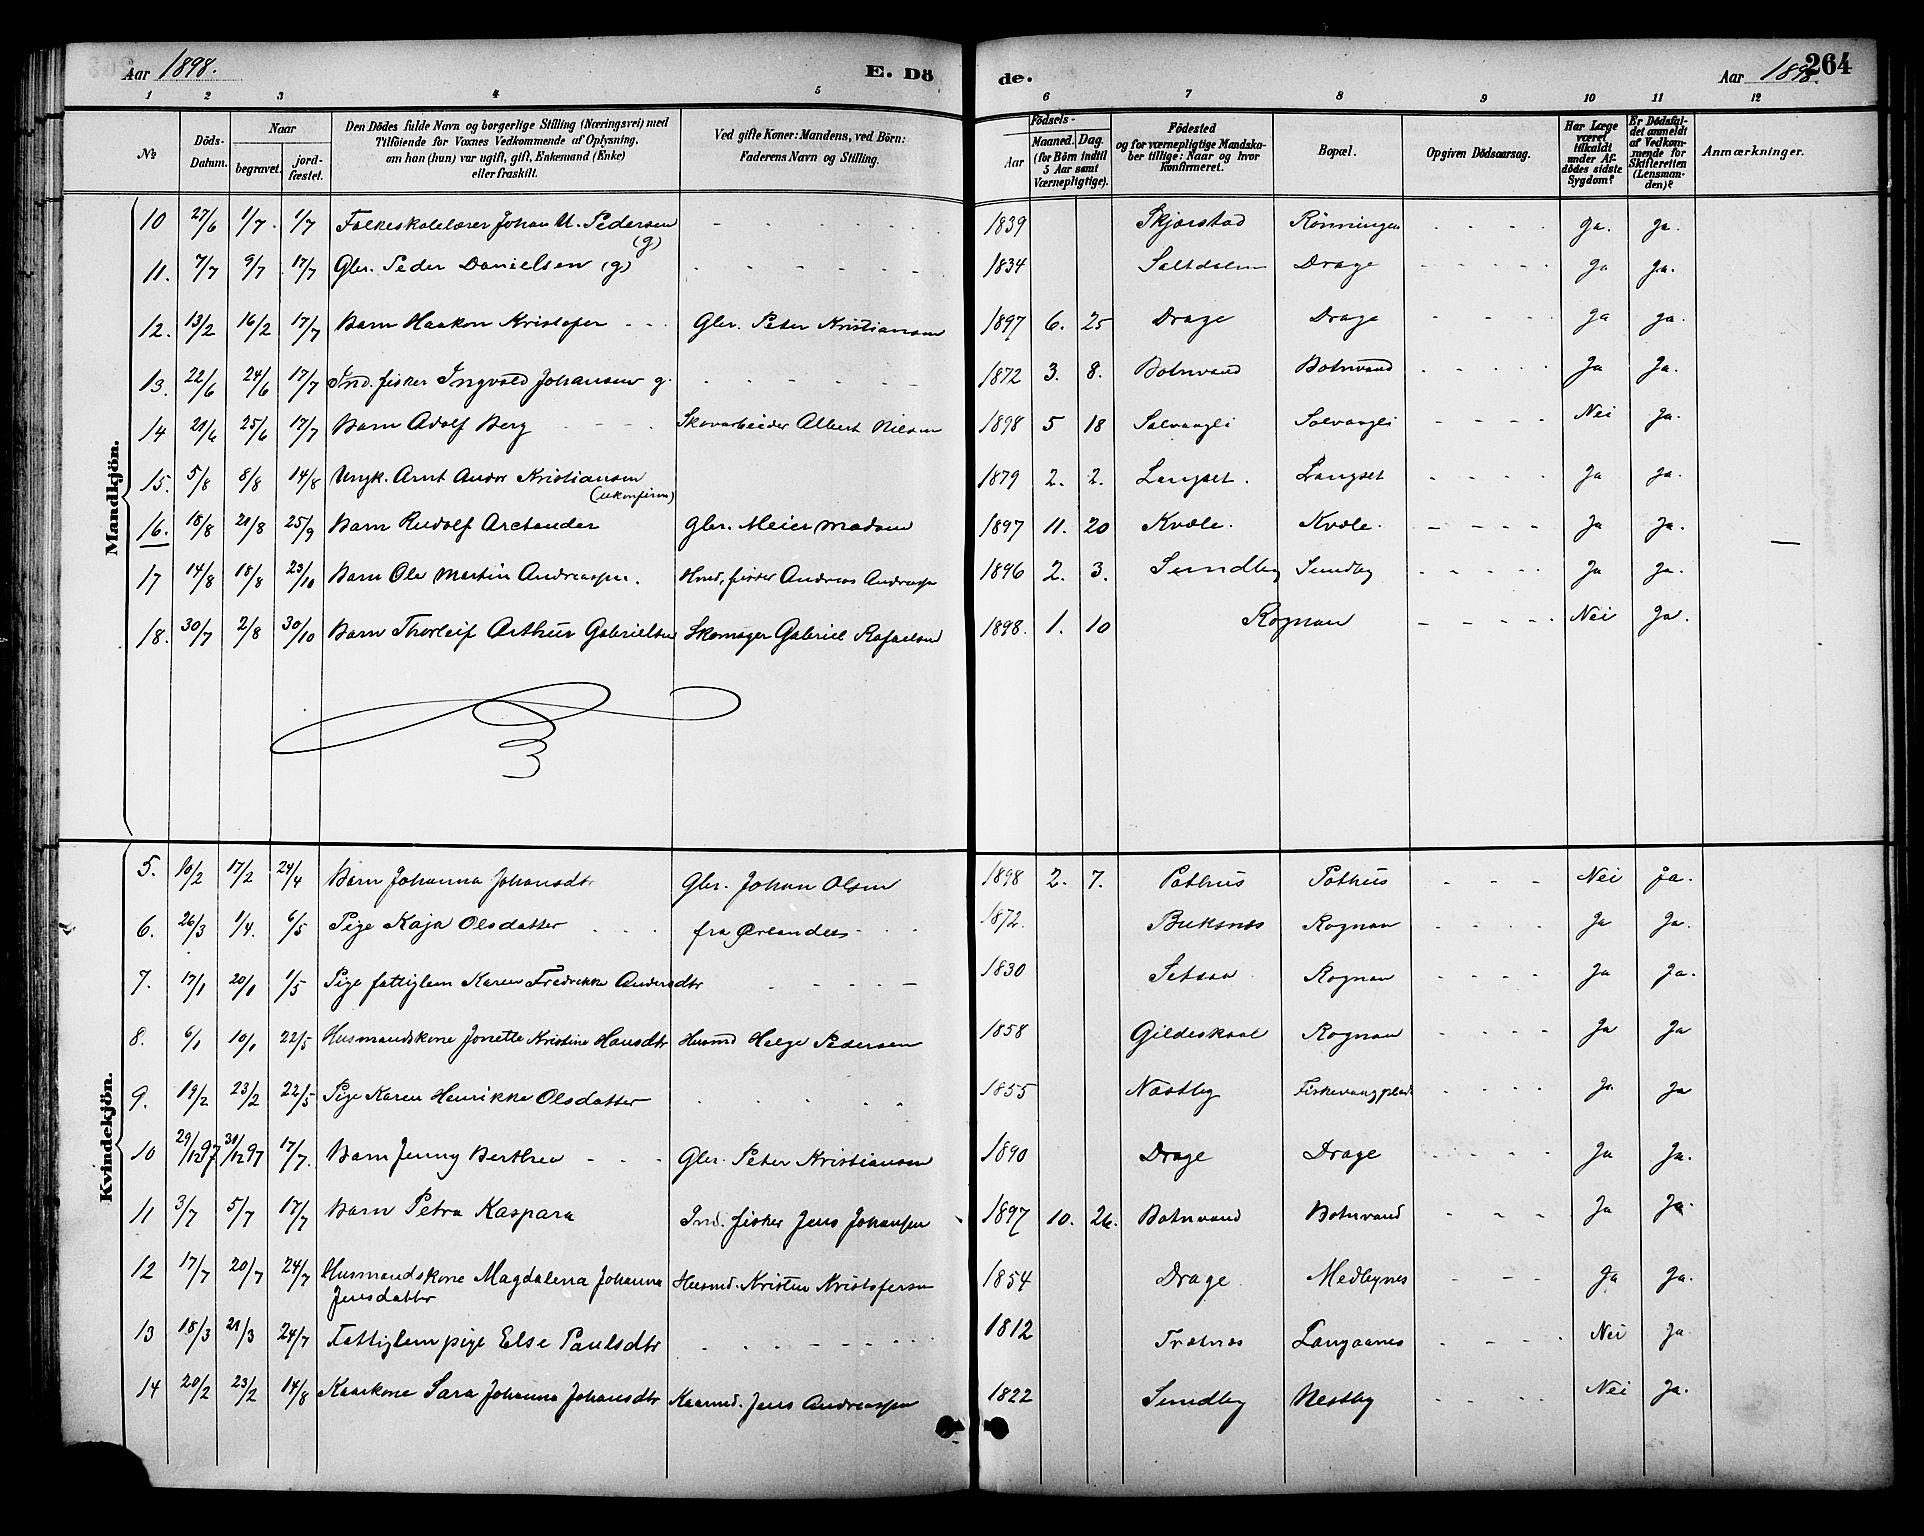 Aar 1898. E. Dö de. Aar 1898. 264
1 2 3 4 5 6 7 8 9 10 11 12
№ Döds-Datum. Naar begravet. jord-fæstet. Den Dödes fulde Navn og borgerlige Stilling (Næringsvei) med Tilföiende for Voxnes Vedkommende af Oplysning, om han (hun) var ugift, gift, Enkemand (Enke) eller fraskilt. Ved gifte Koner: Mandens, ved Börn: Faderens Navn og Stilling. Födsels- Aar Maaned. Dag. (for Börn indtil 5 Aar samt Værnepligtige). Födested og for værnepligtige Mandska-ber tillige: Naar og hvor konfirmeret. Bopæl. Opgiven Dödsaarsag. Har Læge været tilkaldt under Af-dödes sidste Sygdom? Er Dödsfal-det anmeldt af Vedkom-mende for Skifteretten (Lensman-den)? Anmærkninger.
Mandkjön.
10 27/6 1/7 1/7 Folkeskolelærer Johan U. Pedersen (g) - - - - - 1839 Skjerstad Rönningen - - - - Ja. Ja.
11. 7/7 9/7 17/7 Gbr. Peder Danielsen (g) - - - - - 1834 Saltdalen Drage - - - - Ja Ja.
12. 13/2 16/2 17/7 Barn Haakon Kristofer - - - Gbr. Peter Kristiansen 1897 6. 25 Drage Drage - - - - Ja Ja.
13. 22/6 24/6 17/7 Ind. fisker Ingvald Johansen g. - - - - - 1872 3. 8. Botnvand Botnvand - - - - Ja Ja.
14 21/6 25/6 17/7 Barn Adolf Berg - - - Skovarbeider Albert Nilsen 1898 5 18 Solvaagli Solvaagli - - - - Nei Ja.
15. 5/8 8/8 14/8 Ungk. Arnt Andor Kristiansen (ukonfirm) 1879 2. 2. Langset. Langset - - - - Ja Ja.
16. 18/8 21/8 25/9 Barn Rudolf Arctander Gbr. Meier Madsen 1897 11. 20 Kvæle. Kvæle. - - - - Ja Ja. —
17 14/8 18/8 23/10 Barn Ole Martin Andreassen. Husmd, fisker Andreas Andreassen 1896 2. 3. Sundby Sundby - - - - Ja Ja.
18. 30/7 2/8 30/10 Barn Thorleif Arthur Gabrielsen Skomager Gabriel Rafaelsen 1898. 1. 10 Rognan - - - - Nei Ja.
Kvindekjön.
5. 10/2 17/2 24/4 Barn Johanna Johansdtr Gbr. Johan Olsen 1898 2. 7. Pothus Pothus - - - Nei Ja.
6. 26/3 1/4. 6/5 Pige Kaja Olsdatter - - - fra Ørlandets - - 1872. Buksnes Rognan - - - - Ja Ja.
7. 17/1 20/1 1/5 Pige fattiglem Karen Fredrikke Andersdtr - - - - 1830 Setsaa Rognan - - - - Ja Ja.
8. 6/1 10/1 22/5 Husmandskone Jonette Kristine Hansdtr Husmd Helge Pedersen 1858 Gildeskaal Rognan - - - - Ja Ja
9. 19/2 23/2 22/5 Pige Karen Henrikke Olsdatter - - - - - 1855 Næstby Fiskevaagplads - - - - Ja Ja
10 29/12 97 31/12 97 17/7. Barn Jenny Berthea - - - Gbr. Peter Kristiansen 1890 Drage Drage - - - - Ja Ja.
11 3/7 5/7 17/7 Barn Petra Kaspara Ind. fisker Jens Johansen 1897 10. 26. Botnvand Botnvand - - - Ja Ja.
12 17/7 20/7 24/7 Husmandskone Magdalena Johanna Jensdatter Husmd. Kristen Kristofersen 1854 Drage Medbynes - - - Ja Ja.
13 18/3 21/3 24/7 Fattiglem pige Else Paulsdtr - - - - - 1812 Trætnes Langaanes - - - - Nei Ja
14 20/2 23/2 14/8 Kaarkone Sara Johanna Johansdtr Kaarmd. Jens Andreassen 1822 Sundby Nestby - - - - Nei Ja.